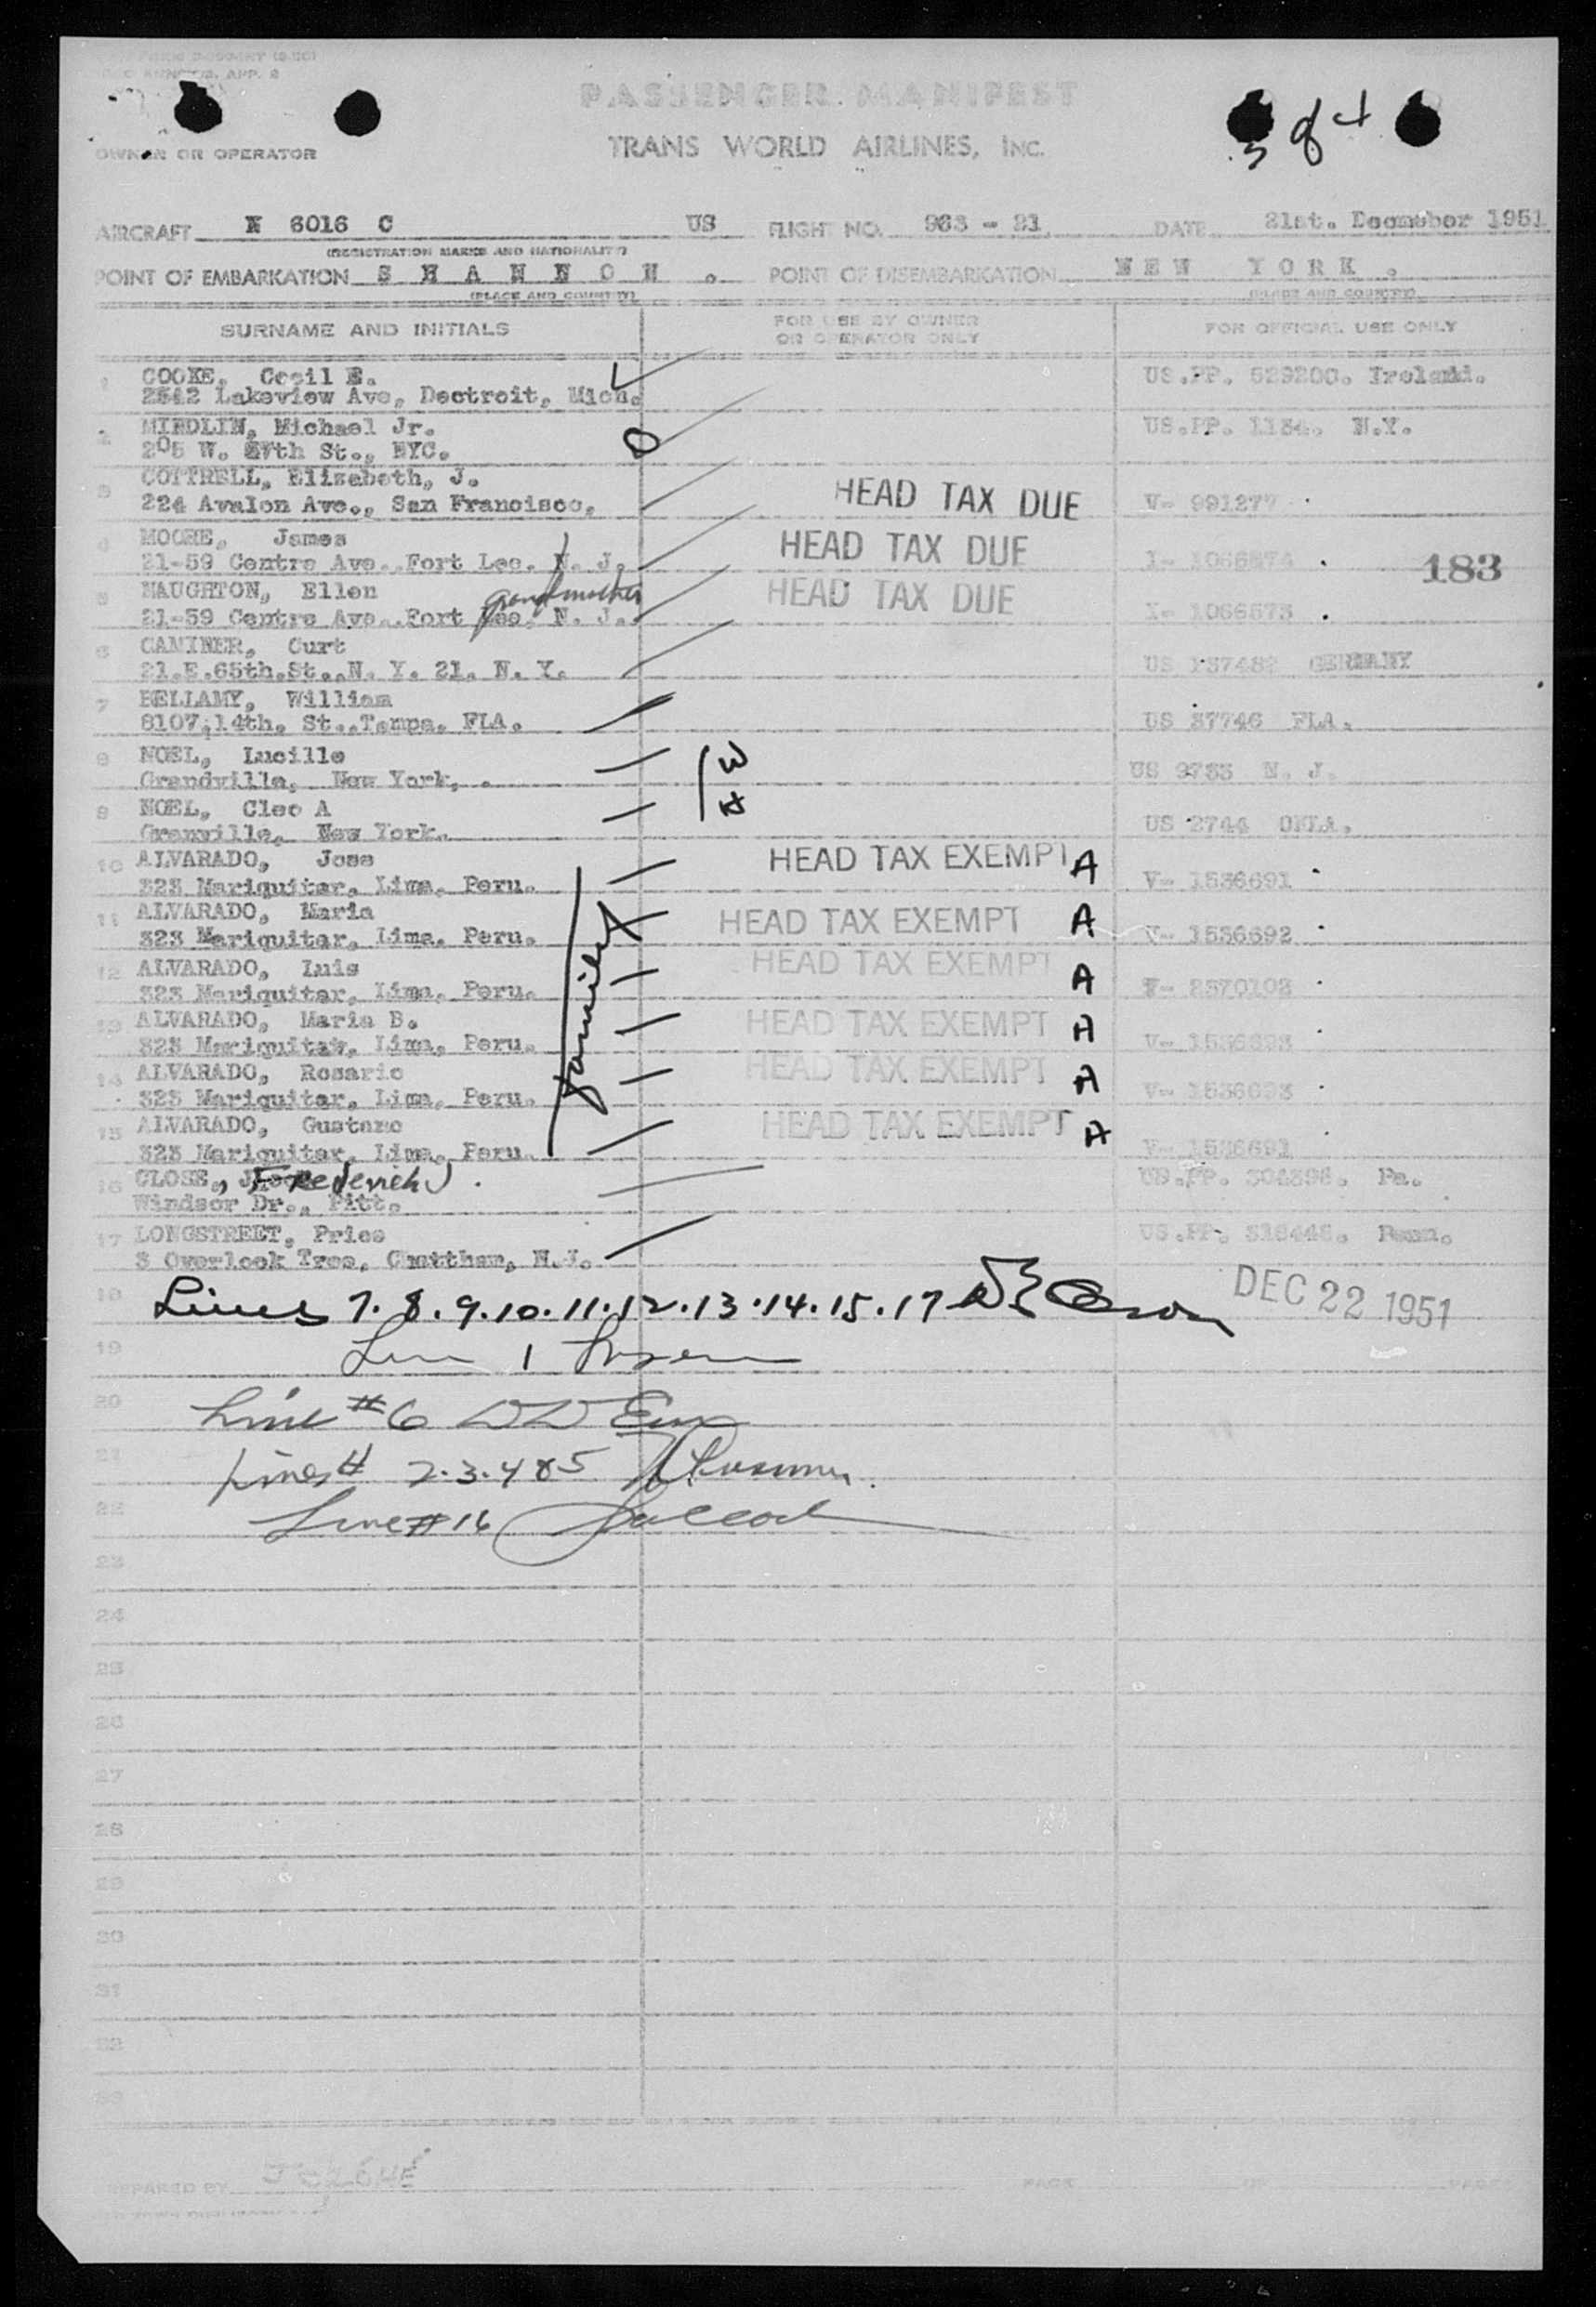 PASSENGER MANIFEST
TRANS WORLD AIRLINES, INC.
OWNER OR OPERATOR
AIRCRAFT N 6016 C US FLIGHT NO. 963 - 21 DATE 21st. Decmebor 1951
(REGISTRATION MARKS AND NATIONALITY)
POINT OF EMBARKATION S H A N N O N . POINT OF DISEMBARKATION N E W Y O R K .
(PLACE AND COUNTRY) (PLACE AND COUNTRY)
SURNAME AND INITIALS FOR USE BY OWNER OR OPERATOR ONLY FOR OFFICIAL USE ONLY
1 COOKE, Cecil E. US.PP. 529200. Ireland.
2542 Lakeview Ave, Dectroit, Mich.
2 MINDLIN, Michael Jr. US.PP. 1134. N.Y.
205 W. 57th St., NYC.
3 COTTRELL, Elizabeth, J. HEAD TAX DUE V- 991277
224 Avalon Ave., San Francisco.
4 MOORE, James HEAD TAX DUE I- 1066574 183
21-59 Centre Ave. Fort Lee. N. J.
5 NAUGHTON, Ellen grandmother HEAD TAX DUE I- 1066573
21-59 Centre Ave. Fort Lee. N. J.
6 CAMINER, Curt US 137482 GERMANY
21.E.65th.St.,N. Y. 21. N. Y.
7 BELLAMY, William US 37746 FLA.
8107,14th. St.,Tampa. FLA.
8 NOEL, Lucille W US 9735 N. J.
Grandville, New York, .
9 NOEL, Cleo A H US 2744 OKLA.
Granville, New York.
10 ALVARADO, Jose HEAD TAX EXEMPT A V- 1536691
323 Mariquitar, Lima, Peru.
11 ALVARADO, Maria HEAD TAX EXEMPT A V- 1536692
323 Mariquitar, Lima, Peru.
family
12 ALVARADO, Luis HEAD TAX EXEMPT A V- 2370102
323 Mariquitar, Lima, Peru.
13 ALVARADO, Maria B. HEAD TAX EXEMPT A V- 1536693
323 Mariquitar, Lima, Peru.
14 ALVARADO, Rosario HEAD TAX EXEMPT A V- 1536693
323 Mariquitar, Lima, Peru.
15 ALVARADO, Gustano HEAD TAX EXEMPT A V- 1536691
323 Mariquitar, Lima, Peru.
16 CLOSE, Frederick J. US.PP. 304396. Pa.
Windsor Dr., Pitt.
17 LONGSTREET, Price US.PP. 316446. Penn.
3 Overlook Tree, Chattham, N.J.
18 Lines 7. 8. 9. 10. 11. 12. 13. 14. 15. 17 DEC 22 1951
19 Line 1
20 Line #6
21 Lines # 2. 3. 4 & 5
22 Line # 16
23
24
25
26
27
28
29
30
31
32
33
PREPARED BY PAGE OF PAGES